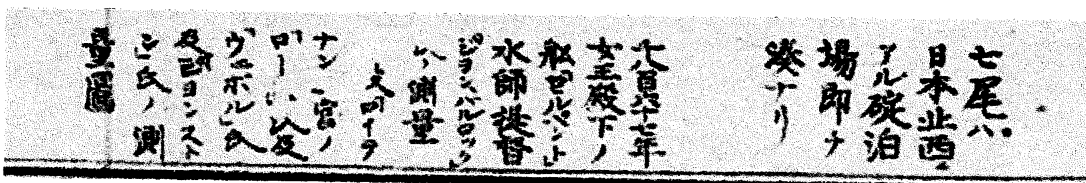 七尾ハ
日本北西ノ
アル碇泊
場即チ
湊ナリ
千八百六十七年
女王殿下ノ
舩「セルペント」
水師提督
「ジヨン、バルロック」
ノ測量
又「ロイテ
ナン」官ノ
「ウ*ボル」氏
及「ヨンスト
ン」氏ノ測
量圖